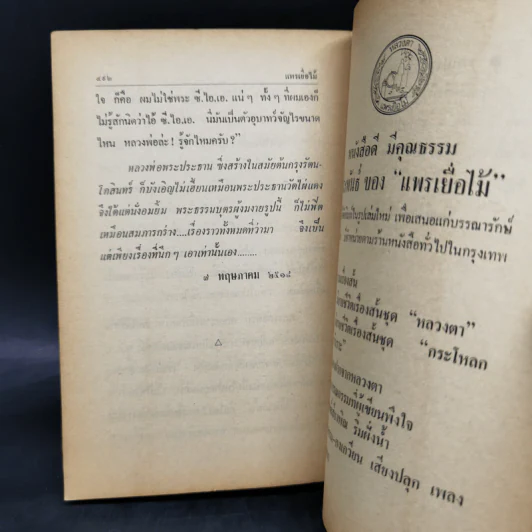 ๔๙๒
แพรเยื่อไม้
ใจ ก็คือ ผมไม่ใช่พระ ซี.ไอ.เอ. แน่ ๆ ทั้ง ๆ ที่ผมเองก็
ไม่รู้สักนิดว่าไอ้ ซี.ไอ.เอ. นี่มันเป็นตัวอุบาทว์จัญไรขนาด
ไหน หลวงพ่อล่ะ! รู้จักไหมครับ?”
หลวงพ่อพระประธาน ซึ่งสร้างในสมัยต้นกรุงรัตน-
โกสินทร์ ก็บังเอิญไม่เอื้อนเหมือนพระประธานวัดไผ่แดง
จึงได้แต่นั่งอมยิ้ม พระธรรมบุตรผู้งมงายรูปนี้ ก็ไม่ฟิต
เหมือนสมภารกร่าง....เรื่องราวทั้งหมดที่ว่ามา จึงเป็น
แต่เพียงเรื่องที่นึก ๆ เอาเท่านั้นเอง........
๘ พฤษภาคม ๒๕๑๘
หลวงตา
หนังสือดี มีคุณธรรม
ของ “แพรเยื่อไม้”
ในรูปเล่มใหม่ เพื่อเสนอแก่บรรณารักษ์
ตามร้านหนังสือทั่วไปในกรุงเทพ
ชีวิตเรื่องสั้นชุด “หลวงตา”
ชีวิตเรื่องสั้นชุด “กระโหลก
จากหลวงตา
ที่ผู้เขียนพึงใจ
ริมฝั่งน้ำ
เสียงปลุก เพลง